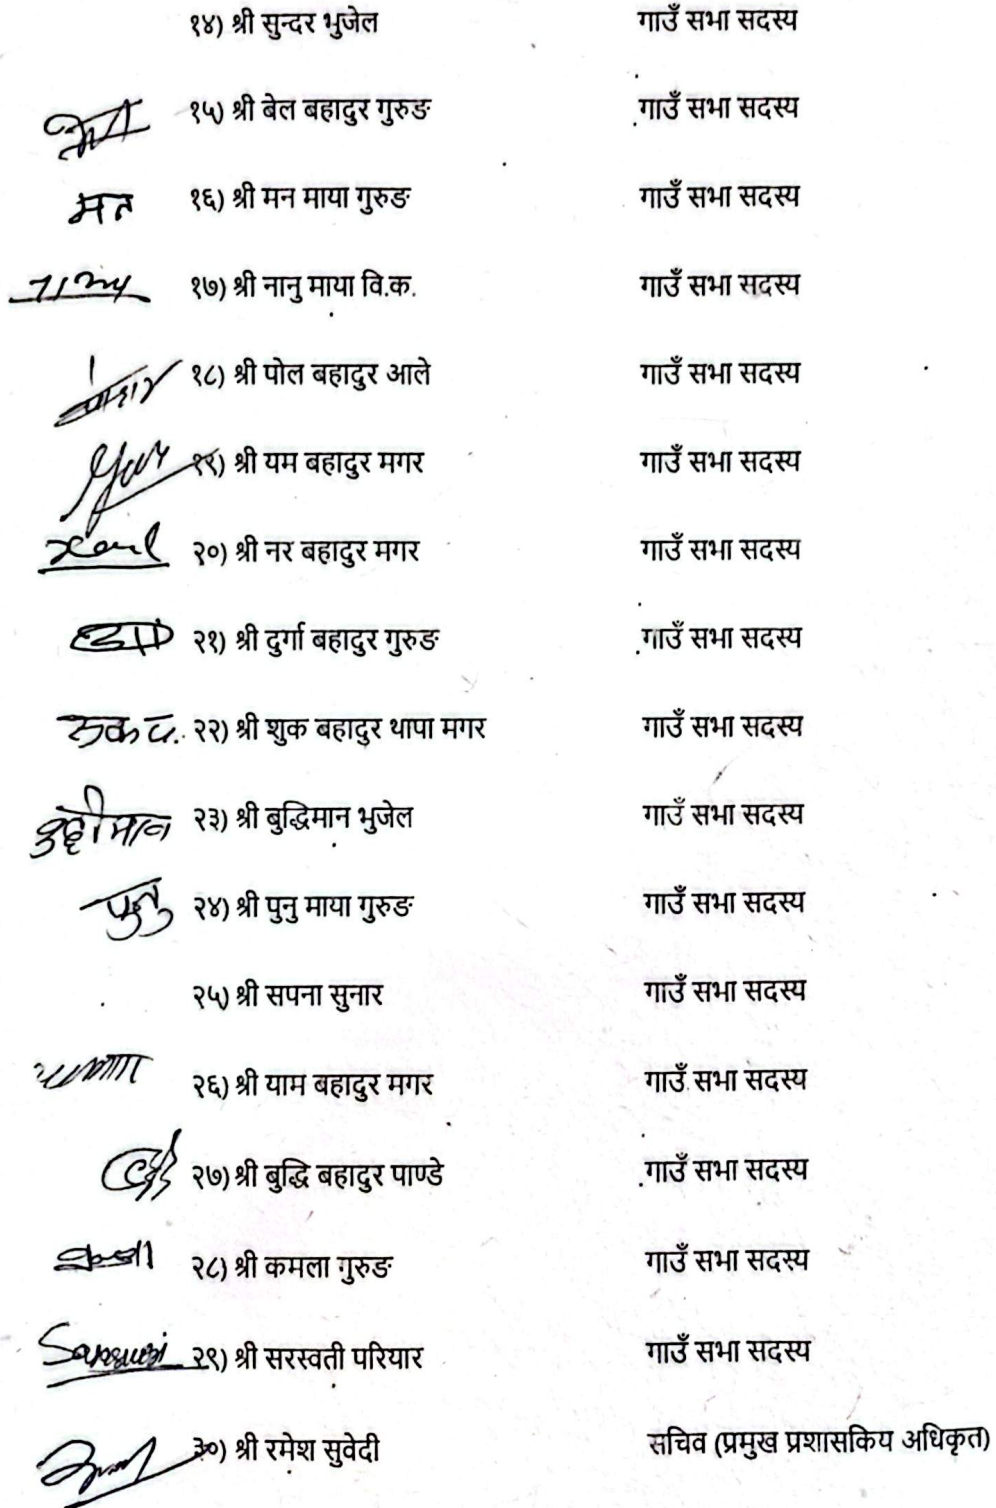 १४) श्री सुन्दर भुजेल गाउँ सभा सदस्य
१५) श्री बेल बहादुर गुरुङ गाउँ सभा सदस्य
मन १६) श्री मन माया गुरुङ गाउँ सभा सदस्य
१७) श्री नानु माया वि.क. गाउँ सभा सदस्य
१८) श्री पोल बहादुर आले गाउँ सभा सदस्य
१९) श्री यम बहादुर मगर गाउँ सभा सदस्य
२०) श्री नर बहादुर मगर गाउँ सभा सदस्य
२१) श्री दुर्गा बहादुर गुरुङ गाउँ सभा सदस्य
२२) श्री शुक बहादुर थापा मगर गाउँ सभा सदस्य
२३) श्री बुद्धिमान भुजेल गाउँ सभा सदस्य
पुनु २४) श्री पुनु माया गुरुङ गाउँ सभा सदस्य
२५) श्री सपना सुनार गाउँ सभा सदस्य
२६) श्री याम बहादुर मगर गाउँ सभा सदस्य
२७) श्री बुद्धि बहादुर पाण्डे गाउँ सभा सदस्य
२८) श्री कमला गुरुङ गाउँ सभा सदस्य
२९) श्री सरस्वती परियार गाउँ सभा सदस्य
३०) श्री रमेश सुवेदी सचिव (प्रमुख प्रशासकिय अधिकृत)